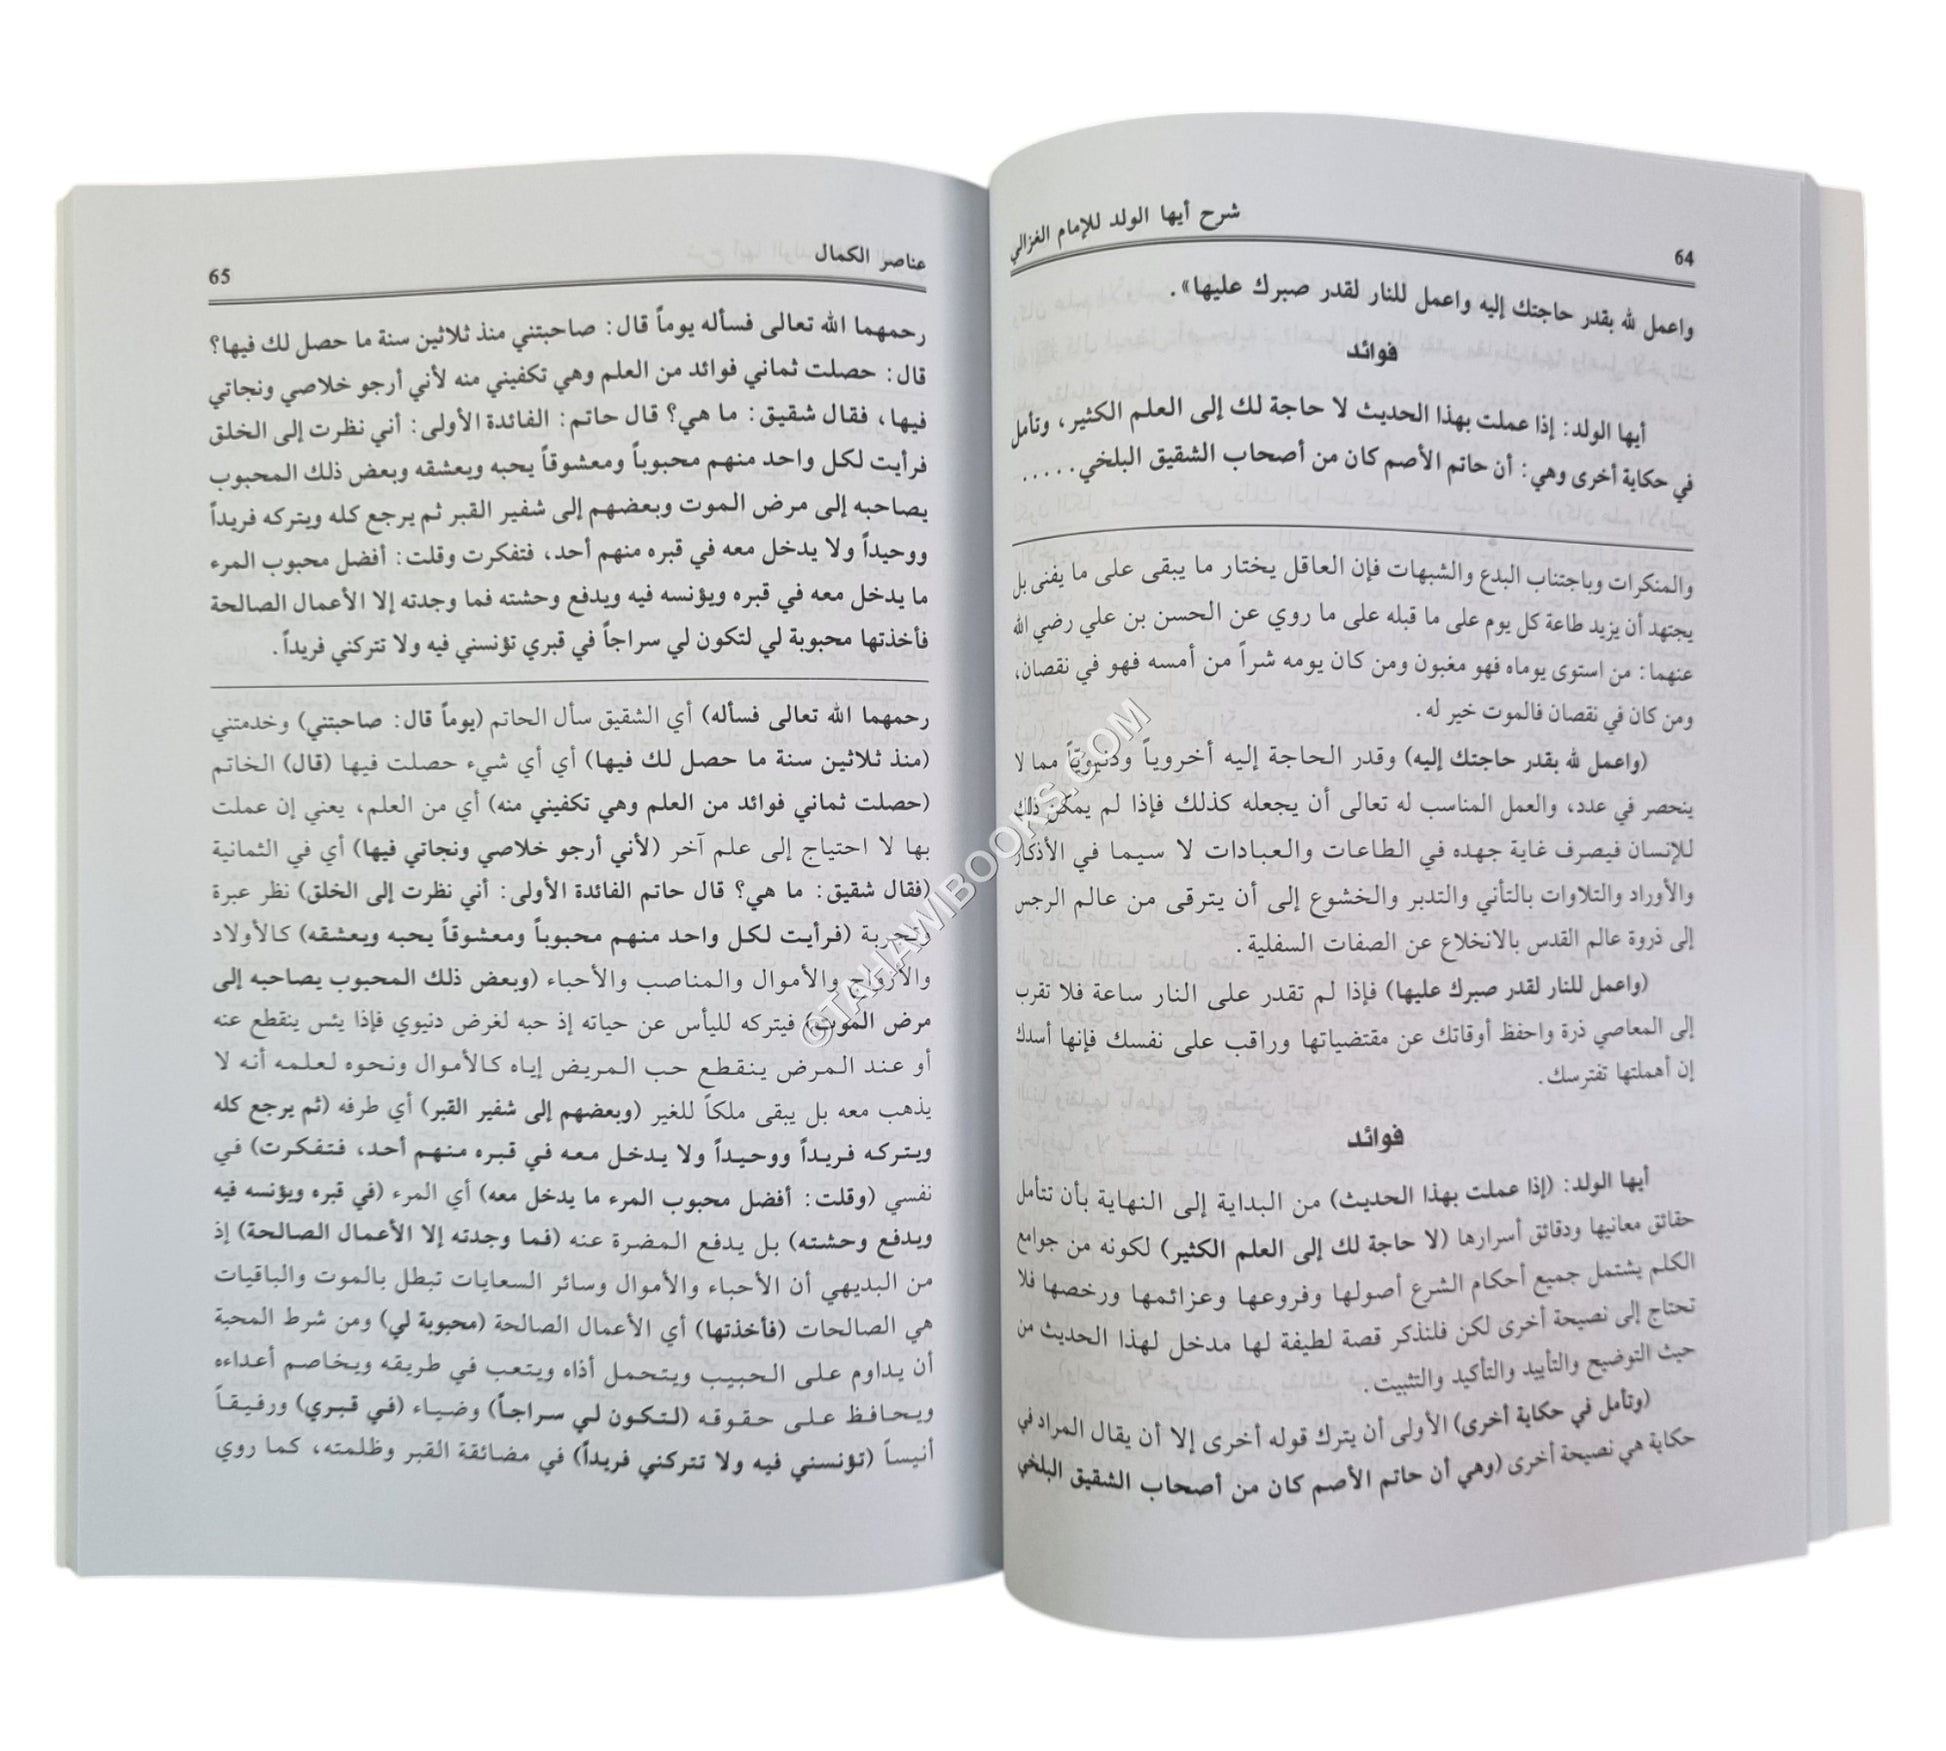 شرح أيها الولد للإمام الغزالي
64
واعمل لله بقدر حاجتك إليه واعمل للنار لقدر صبرك عليها».
فوائد
أيها الولد: إذا عملت بهذا الحديث لا حاجة لك إلى العلم الكثير، وتأمل
في حكاية أخرى وهي: أن حاتم الأصم كان من أصحاب الشقيق البلخي.....
والمنكرات وباجتناب البدع والشبهات فإن العاقل يختار ما يبقى على ما يفنى بل
يجتهد أن يزيد طاعة كل يوم على ما قبله على ما روي عن الحسن بن علي رضي الله
عنهما: من استوى يوماه فهو مغبون ومن كان يومه شراً من أمسه فهو في نقصان،
ومن كان في نقصان فالموت خير له.
(واعمل لله بقدر حاجتك إليه) وقدر الحاجة إليه أخروياً ودنيوياً مما لا
ينحصر في عدد، والعمل المناسب له تعالى أن يجعله كذلك فإذا لم يمكن ذلك
للإنسان فيصرف غاية جهده في الطاعات والعبادات لا سيما في الأذكار
والأوراد والتلاوات بالتأني والتدبر والخشوع إلى أن يترقى من عالم الرجس
إلى ذروة عالم القدس بالانخلاع عن الصفات السفلية.
(واعمل للنار لقدر صبرك عليها) فإذا لم تقدر على النار ساعة فلا تقرب
إلى المعاصي ذرة واحفظ أوقاتك عن مقتضياتها وراقب على نفسك فإنها أسدك
إن أهملتها تفترسك.
فوائد
أيها الولد: (إذا عملت بهذا الحديث) من البداية إلى النهاية بأن تتأمل
حقائق معانيها ودقائق أسرارها (لا حاجة لك إلى العلم الكثير) لكونه من جوامع
الكلم يشتمل جميع أحكام الشرع أصولها وفروعها وعزائمها ورخصها فلا
تحتاج إلى نصيحة أخرى لكن فلنذكر قصة لطيفة لها مدخل لهذا الحديث من
حيث التوضيح والتأييد والتأكيد والتثبيت.
(وتأمل في حكاية أخرى) الأولى أن يترك قوله أخرى إلا أن يقال المراد في
حكاية هي نصيحة أخرى (وهي أن حاتم الأصم كان من أصحاب الشقيق البلخي
عناصر الكمال
65
رحمهما الله تعالى فسأله يوماً قال: صاحبتني منذ ثلاثين سنة ما حصل لك فيها؟
قال: حصلت ثماني فوائد من العلم وهي تكفيني منه لأني أرجو خلاصي ونجاتي
فيها، فقال شقيق: ما هي؟ قال حاتم: الفائدة الأولى: أني نظرت إلى الخلق
فرأيت لكل واحد منهم محبوباً ومعشوقاً يحبه ويعشقه وبعض ذلك المحبوب
يصاحبه إلى مرض الموت وبعضهم إلى شفير القبر ثم يرجع كله ويتركه فريداً
ووحيداً ولا يدخل معه في قبره منهم أحد، فتفكرت وقلت: أفضل محبوب المرء
ما يدخل معه في قبره ويؤنسه فيه ويدفع وحشته فما وجدته إلا الأعمال الصالحة
فأخذتها محبوبة لي لتكون لي سراجاً في قبري تؤنسني فيه ولا تتركني فريداً.
رحمهما الله تعالى فسأله) أي الشقيق سأل الحاتم (يوماً قال: صاحبتني) وخدمتني
(منذ ثلاثين سنة ما حصل لك فيها) أي أي شيء حصلت فيها (قال) الخاتم
(حصلت ثماني فوائد من العلم وهي تكفيني منه) أي من العلم، يعني إن عملت
بها لا احتياج إلى علم آخر (لأني أرجو خلاصي ونجاتي فيها) أي في الثمانية
(فقال شقيق: ما هي؟ قال حاتم الفائدة الأولى: أني نظرت إلى الخلق) نظر عبرة
وتجربة (فرأيت لكل واحد منهم محبوباً ومعشوقاً يحبه ويعشقه) كالأولاد
والأزواج والأموال والمناصب والأحباء (وبعض ذلك المحبوب يصاحبه إلى
مرض الموت) فيتركه لليأس عن حياته إذ حبه لغرض دنيوي فإذا يئس ينقطع عنه
أو عند المرض ينقطع حب المريض إياه كالأموال ونحوه لعلمه أنه لا
يذهب معه بل يبقى ملكاً للغير (وبعضهم إلى شفير القبر) أي طرفه (ثم يرجع كله
ويتركه فريداً ووحيداً ولا يدخل معه في قبره منهم أحد، فتفكرت) في
نفسي (وقلت: أفضل محبوب المرء ما يدخل معه) أي المرء (في قبره ويؤنسه فيه
ويدفع وحشته) بل يدفع المضرة عنه (فما وجدته إلا الأعمال الصالحة) إذ
من البديهي أن الأحباء والأموال وسائر السعايات تبطل بالموت والباقيات
هي الصالحات (فأخذتها) أي الأعمال الصالحة (محبوبة لي) ومن شرط المحبة
أن يداوم على الحبيب ويتحمل أذاه ويتعب في طريقه ويخاصم أعداءه
ويحافظ على حقوقه (لتكون لي سراجاً) وضياء (في قبري) ورفيقاً
أنيساً (تؤنسني فيه ولا تتركني فريداً) في مضائقة القبر وظلمته، كما روي
©TAHAWIBOOKS.COM